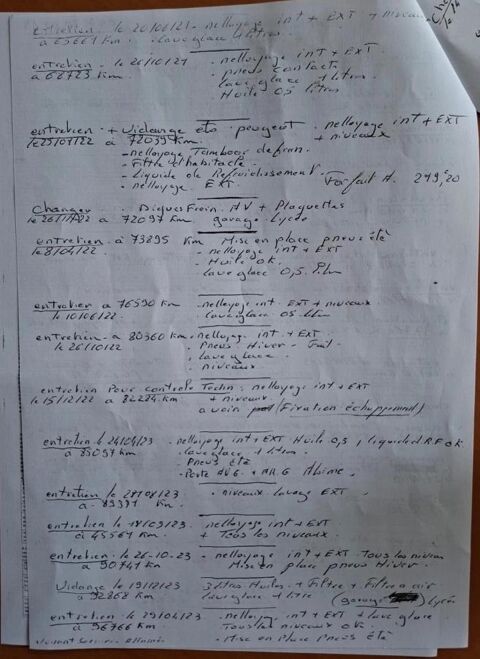 entretien le 20/06/21 - nettoyage int + EXT + niveaux
à 65661 Km. lave glace 4 litres
entretien. le 26/10/21 - nettoyage inT + EXT
à 68723 Km. - pneus contacts
lave glace 1 litres
Huile 0,5 litres
entretien + Vidange éts peugeot. nettoyage int + EXT
le 25/01/22 à 72059 Km. + niveaux
- nettoyage Tambour de frein.
- Filtre d'habitacle
- Liquide de Refroidissement. Forfait A. 249,20
- nettoyage EXT.
Changer Disques Frein AV + Plaquettes
le 26/1/22 à 72097 Km garage Lycée
entretien à 73895 Km Mise en place pneus été
le 8/04/22 - nettoyage int + EXT
- Huile OK.
- lave glace 0,5
entretien à 76590 Km - nettoyage int. EXT + niveaux
le 10/06/22 - lave glace 05
entretien à 80360 Km. nettoyage int + EXT
le 26/10/22 - Pneus Hiver - Fait
- lave glace
- niveaux
entretien Pour controle Techn: nettoyage int + EXT
le 15/12/22 à 82224 Km + niveaux
a voir (Fixation échappement)
entretien le 24/04/23 - nettoyage int + EXT Huile 0,5, liquide RF OK
à 85097 Km - lave glace 1 litre
- Pneus été
- Porte AVG. + AR.G Abimé
entretien le 28/08/23 - niveaux lavage EXT
à 89391 Km
entretien le 18/09/23 nettoyage int + EXT
à 45567 Km + Tous les niveaux
entretien le 26-10-23 - nettoyage inT + EXT Tous les niveau
à 90741 Km Mise en place pneus Hiver
Vidange le 19/12/23 3 litres Huiles + Filtre + Filtre a air
à 92868 Km lave glace 1 litre (garage Lycée
entretien le 29/04/23 - nettoyage int + EXT + lave glace
à 96766 Km Tous les niveaux OK.
- Mise en Place Pneus été